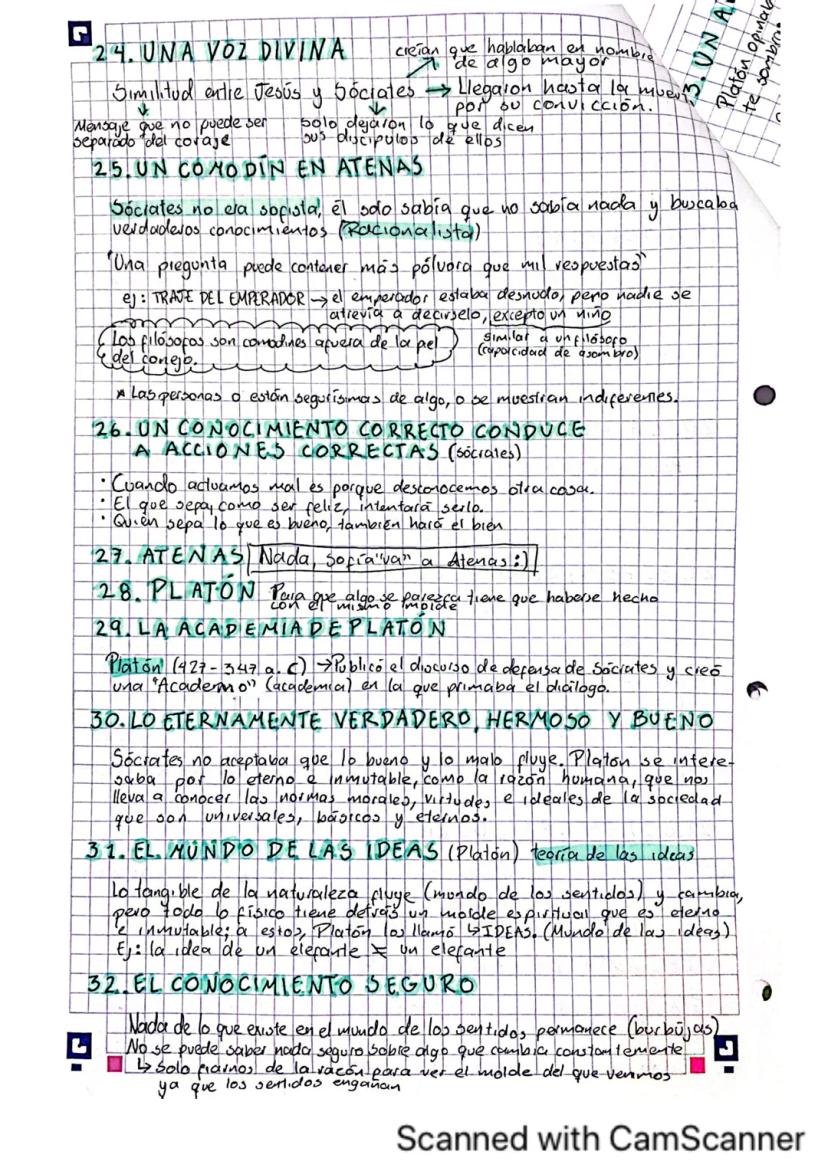 24. UNA VOZ DIVINA
creían que hablaban en nombre
de algo mayor
Similitud entre Jesús y Sócrates → Llegaron hasta la muer
por su convicción.
Mensaje que no puede ser
separado del coraje
solo dejaron lo que dicen
sus discípulos de ellos
3. UN A
Platón opinab
te sombri
25. UN COMODÍN EN ATENAS
Sócrates no era sofista, él solo sabía que no sabía nada y buscaba
verdaderos conocimientos (Racionalista)
"Una pregunta puede contener más pólvora que mil respuestas"
ej: TRAJE DEL EMPERADOR → el emperador estaba desnudo, pero nadie se
atrevía a decírselo, excepto un niño
Los filósofos son comodines afuera de la piel
del conejo.
similar a un filósofo
(capacidad de asombro)
* Las personas o están segurísimas de algo, o se muestran indiferentes.
26. UN CONOCIMIENTO CORRECTO CONDUCE
A ACCIONES CORRECTAS (sócrates)
· Cuando actuamos mal es porque desconocemos otra cosa.
· El que sepa, como ser feliz, intentará serlo.
· Quién sepa lo que es bueno, también hará el bien
27. ATENAS Nada, sofía "va" a Atenas :)
28. PLATÓN Para que algo se parezca tiene que haberse hecho
con el mismo molde
29. LA ACADEMIA DE PLATÓN
Platón (427 - 347 a. C) → Publicó el discurso de defensa de Sócrates y creó
una "Academo" (academia) en la que primaba el diálogo.
30. LO ETERNAMENTE VERDADERO, HERMOSO Y BUENO
Sócrates no aceptaba que lo bueno y lo malo fluye. Platón se intere-
saba por lo eterno e inmutable, como la razón humana, que nos
lleva a conocer las normas morales, virtudes e ideales de la sociedad
que son universales, básicos y eternos.
31. EL MUNDO DE LAS IDEAS (Platón) teoría de las ideas
Lo tangible de la naturaleza fluye (mundo de los sentidos) y cambia,
pero todo lo físico tiene detrás un molde espiritual que es eterno
e inmutable; a estos, Platón los llamó ↳ IDEAS. (Mundo de las ideas)
Ej: la idea de un elefante ≠ un elefante
32. EL CONOCIMIENTO SEGURO
Nada de lo que existe en el mundo de los sentidos permanece (burbujas)
No se puede saber nada seguro sobre algo que cambia constantemente
↳ Solo fiarnos de la razón para ver el molde del que venimos
ya que los sentidos engañan
Scanned with CamScanner